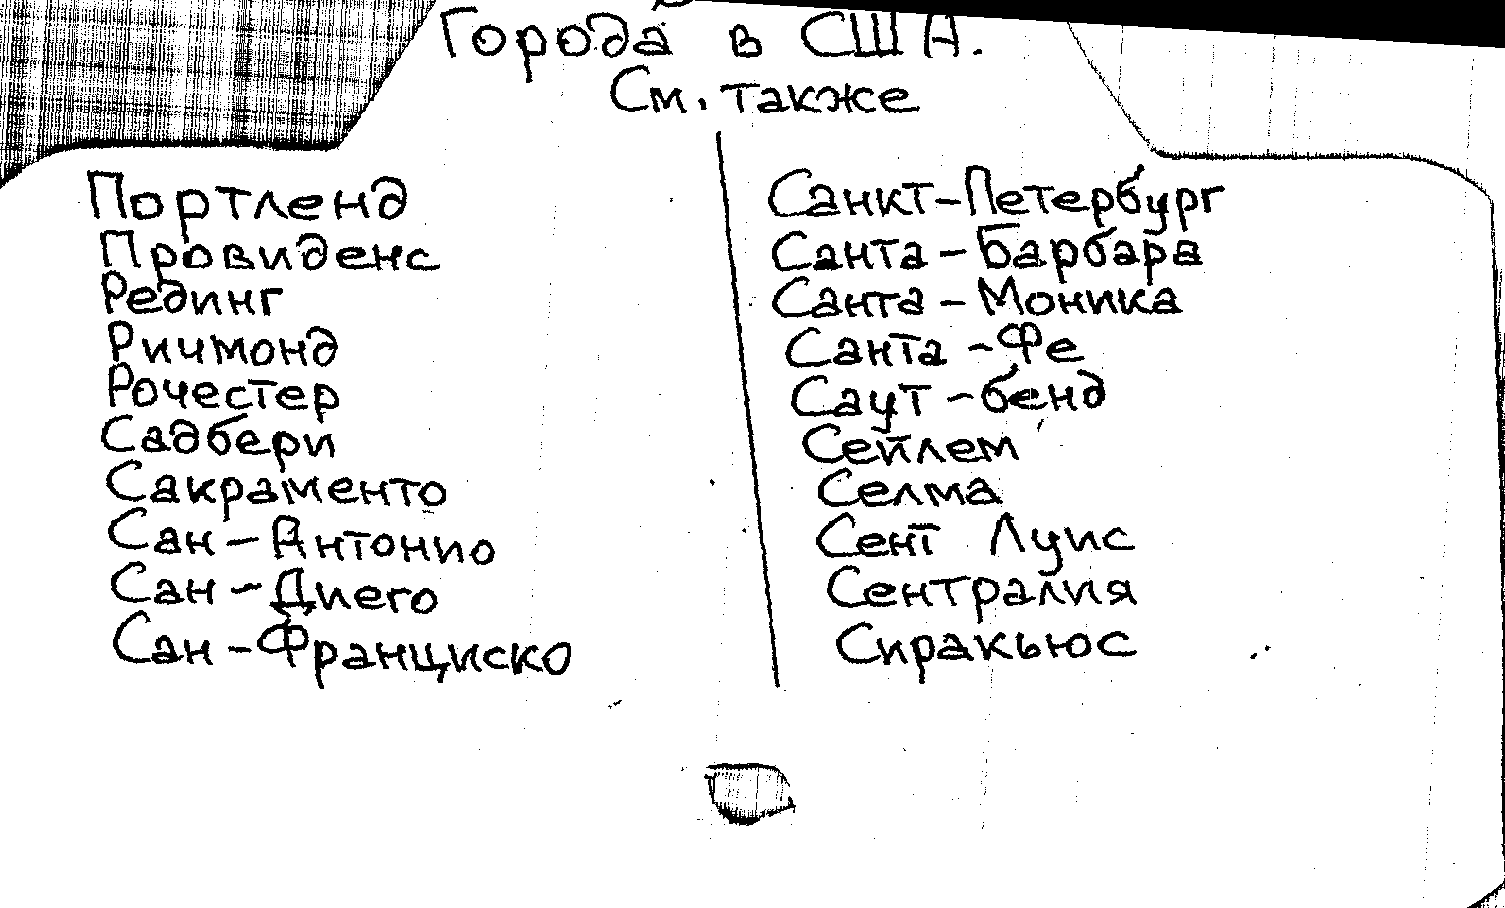 Города в США.
См. также
Портленд
Провиденс
Рединг
Ричмонд
Рочестер
Садбери
Сакраменто
Сан-Антонио
Сан-Диего
Сан-Франциско
Санкт-Петербург
Санта-Барбара
Санта-Моника
Санта-Фе
Саут-бенд
Сейлем
Селма
Сент Луис
Сентралия
Сиракьюс